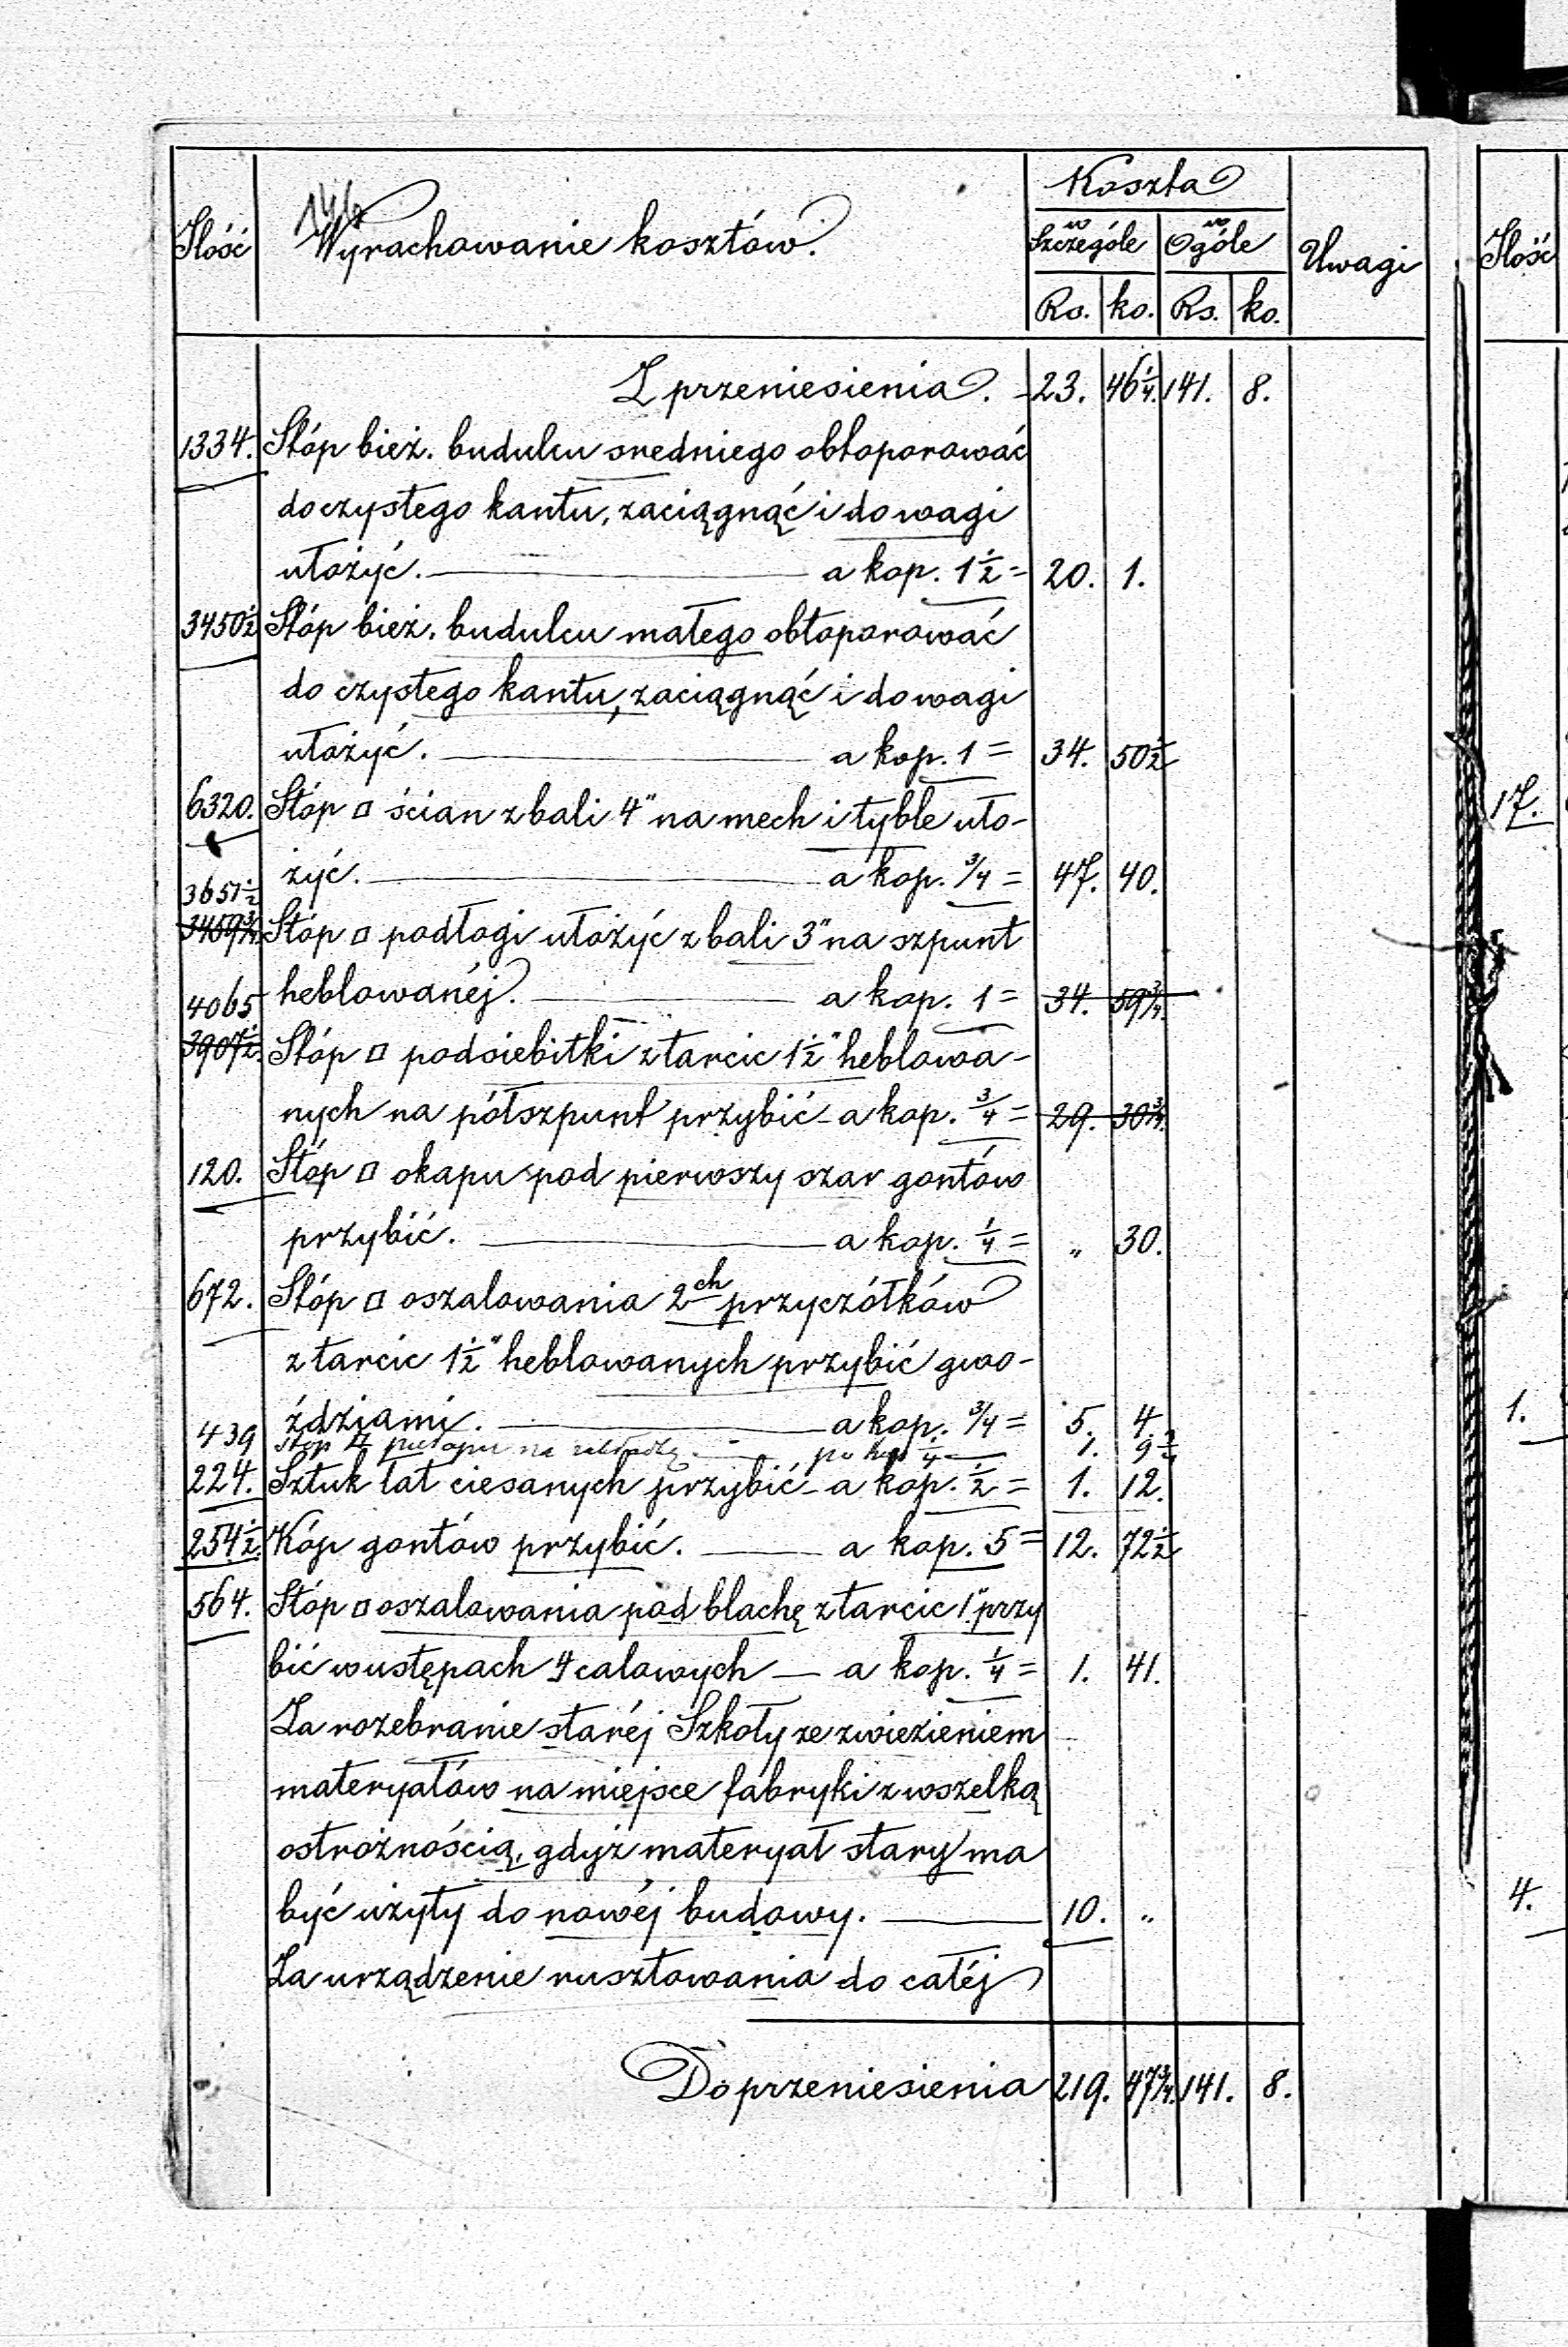 146
Ilość Wyrachowanie kosztów. Koszta Uwagi Ilość
w Szczególe w Ogóle
Rs. ko. Rs. ko.
Z przeniesienia. - 23. 46 1/4. 141. 8.
1334. Stóp bież. budulcu średniego obtoporować
do czystego kantu, zaciągnąć i do wagi
ułożyć. — a kop. 1 1/2 = 20. 1.
3450 1/2 Stóp bież. budulcu małego obtoporować
do czystego kantu, zaciągnąć i do wagi
ułożyć. — a kop. 1 = 34. 50 1/2
6320. Stóp □ ścian z bali 4" na mech i tyble uło-
żyć. — a kop. 3/4 = 47. 40.
3651 1/2
3459 3/4 Stóp □ podłogi ułożyć z bali 3" na szpunt
heblowanéj. — a kop. 1 = 34. 59 3/4.
4065
3907 1/2. Stóp □ podsiebitki z tarcic 1 1/2" heblowa-
nych na półszpunt przybić - a kop. 3/4 = 29. 30 3/4.
120. Stóp □ okapu pod pierwszy szar gontów
przybić. — a kop. 1/4 = " 30.
672. Stóp □ oszalowania 2ch przyczółków
z tarcic 1 1/2" heblowanych przybić gwo-
ździami. — a kop. 3/4 = 5. 4.
439 stóp □ pułapu na zakładkę. — po kop 1/4 — 1. 9 3/4
224. Sztuk łat ciesanych przybić - a kop. 1/2 = 1. 12.
254 1/2. Kóp gontów przybić. — a kop. 5 = 12. 72 1/2
564. Stóp □ oszalowania pod blachę z tarcic 1" przy
bić w ustępach 4 calowych — a kop. 1/4 = 1. 41.
Za rozebranie staréj Szkoły ze zwiezieniem
materyałów na miejsce fabryki z wszelką
ostrożnością, gdyż materyał stary ma
być użyty do nowéj budowy. — 10. "
Za urządzenie rusztowania do całéj
Do przeniesienia 219. 47 3/4. 141. 8.
17.
1.
4.